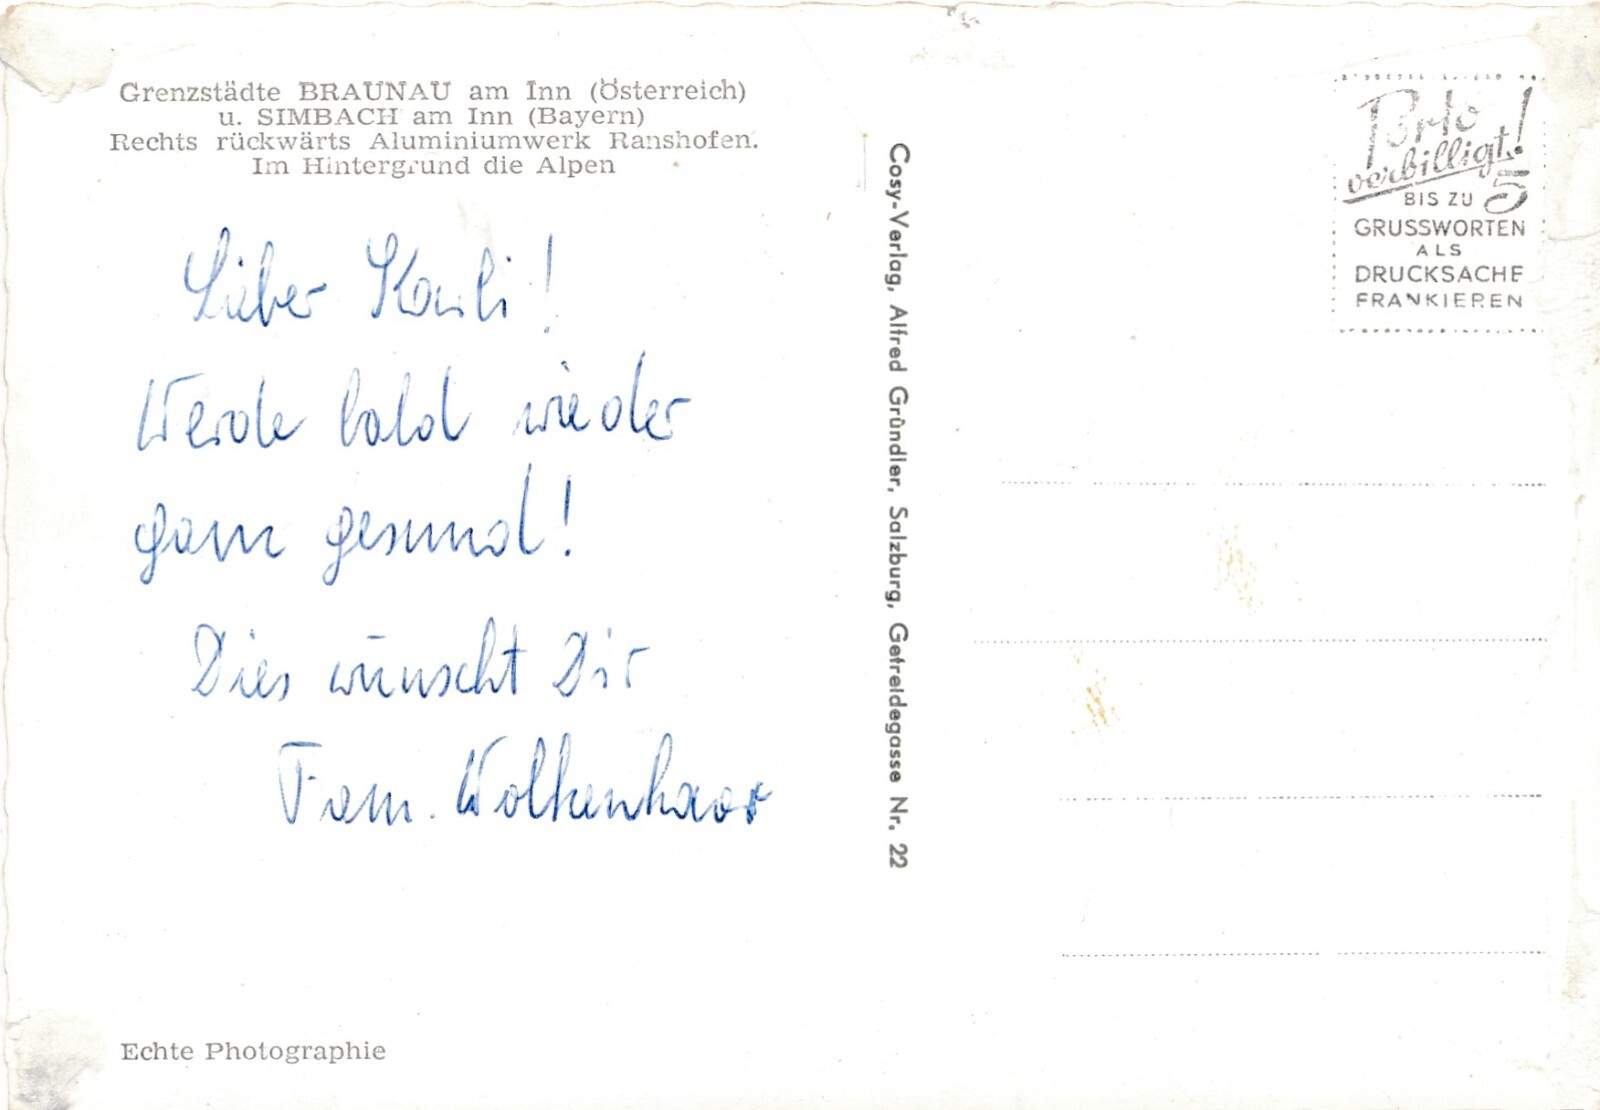 Grenzstädte BRAUNAU am Inn (Österreich)
u. SIMBACH am Inn (Bayern)
Rechts rückwärts Aluminiumwerk Ranshofen.
Im Hintergrund die Alpen
Lieber Karli!
Werde bald wieder
ganz gesund!
Dies wünscht Dir
Fam. Wolkenhaar
Echte Photographie
Cosy-Verlag, Alfred Gründler, Salzburg, Getreidegasse Nr. 22
Porto
verbilligt!
BIS ZU 5
GRUSSWORTEN
ALS
DRUCKSACHE
FRANKIEREN